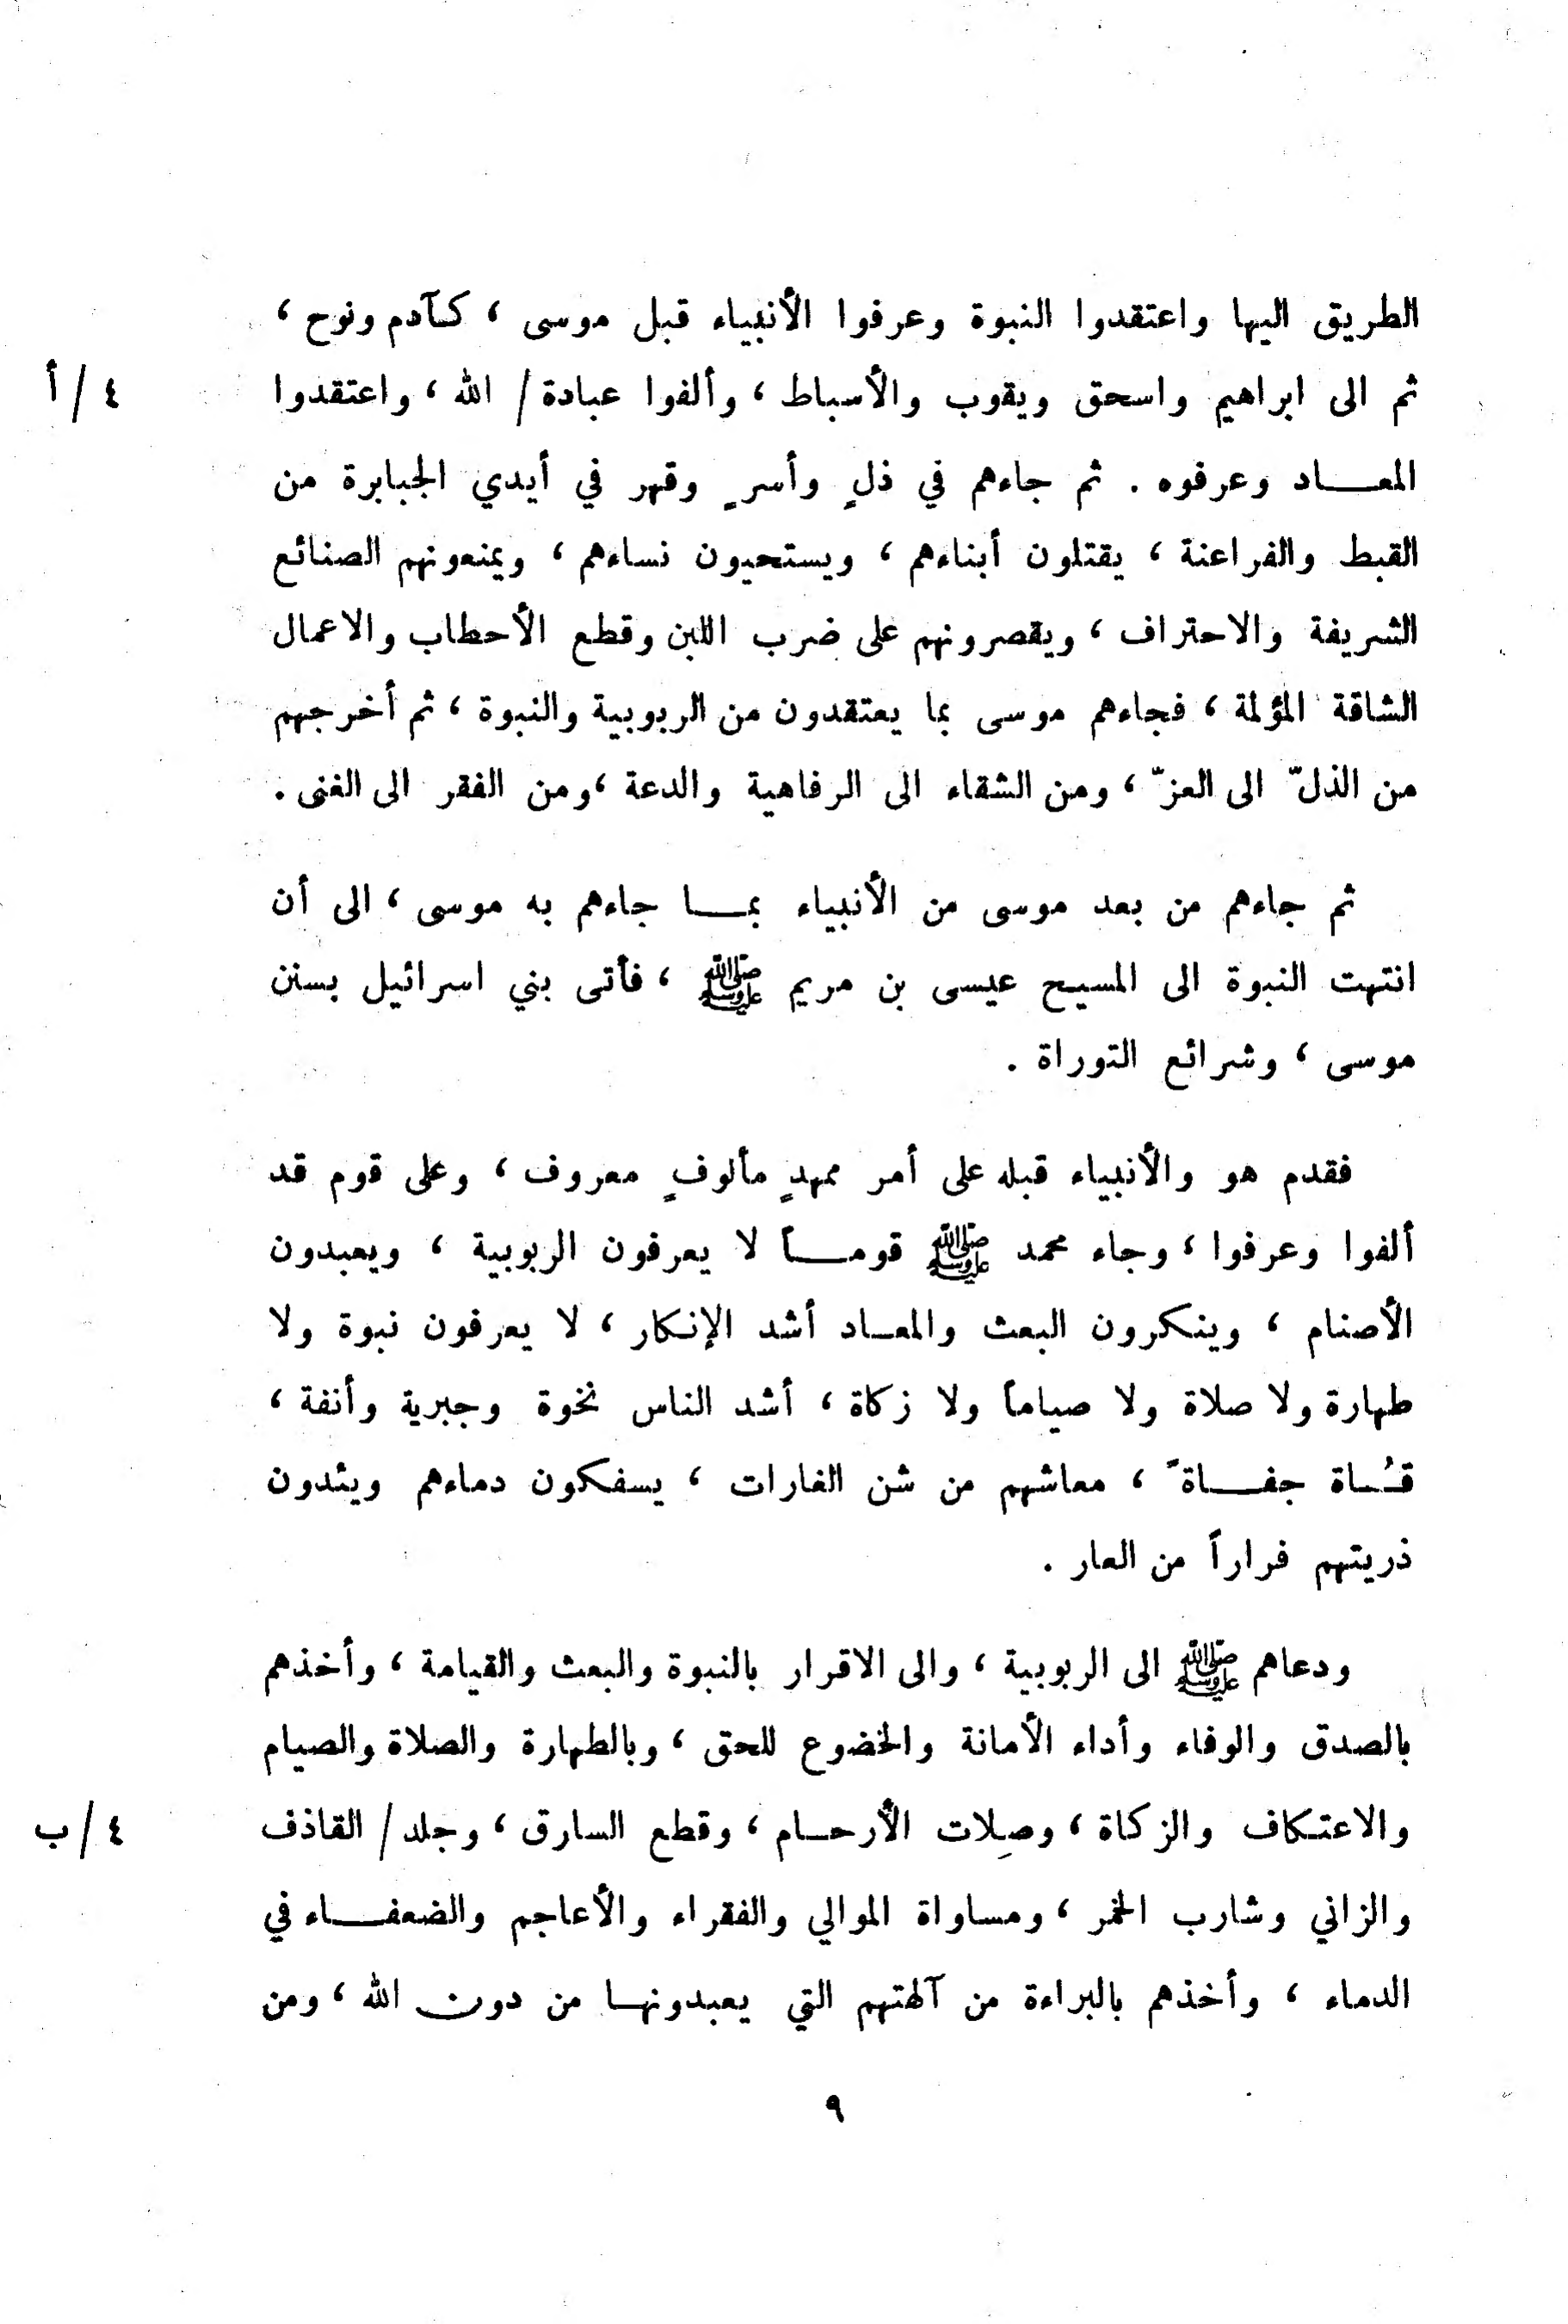 الطريق اليها واعتقدوا النبوة وعرفوا الأنبياء قبل موسى ، كآدم ونوح ،
ثم الى ابراهيم واسحق ويقوب والأسباط ، وألفوا عبادة / الله ، واعتقدوا
٤ / أ
المعاد وعرفوه . ثم جاءهم في ذلٍ وأسرٍ وقهر في أيدي الجبابرة من
القبط والفراعنة ، يقتلون أبناءهم ، ويستحيون نساءهم ، ويمنعونهم الصنائع
الشريفة والاحتراف ، ويقصرونهم على ضرب اللبن وقطع الأحطاب والاعمال
الشاقة المؤلمة ، فجاءهم موسى بما يعتقدون من الربوبية والنبوة ، ثم أخرجهم
من الذلّ الى العزّ ، ومن الشقاء الى الرفاهية والدعة ، ومن الفقر الى الغنى .
ثم جاءهم من بعد موسى من الأنبياء بما جاءهم به موسى ، الى أن
انتهت النبوة الى المسيح عيسى بن مريم ﷺ ، فأتى بني اسرائيل بسنن
موسى ، وشرائع التوراة .
فقدم هو والأنبياء قبله على أمر ممهدٍ مألوفٍ معروف ، وعلى قوم قد
ألفوا وعرفوا ، وجاء محمد ﷺ قوماً لا يعرفون الربوبية ، ويعبدون
الأصنام ، وينكرون البعث والمعاد أشد الإنكار ، لا يعرفون نبوة ولا
طهارة ولا صلاة ولا صياماً ولا زكاة ، أشد الناس نخوة وجبرية وأنفة ،
قُساة جفاة ً ، معاشهم من شن الغارات ، يسفكون دماءهم ويئدون
ذريتهم فراراً من العار .
ودعاهم ﷺ الى الربوبية ، والى الاقرار بالنبوة والبعث والقيامة ، وأخذهم
بالصدق والوفاء وأداء الأمانة والخضوع للحق ، وبالطهارة والصلاة والصيام
والاعتكاف والزكاة ، وصِلات الأرحام ، وقطع السارق ، وجلد / القاذف
٤ / ب
والزاني وشارب الخمر ، ومساواة الموالي والفقراء والأعاجم والضعفاء في
الدماء ، وأخذهم بالبراءة من آلهتهم التي يعبدونها من دون الله ، ومن
٩